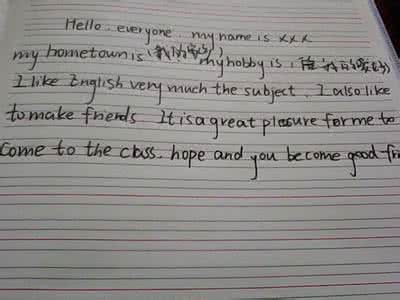 Hello. everyone. my name is xxx
my hometown is (我的家乡) my hobby is: (我的爱好)
I like English very much the subject. I also like
to make friends It is a great plesure for me to
come to the class. hope and you become good fri